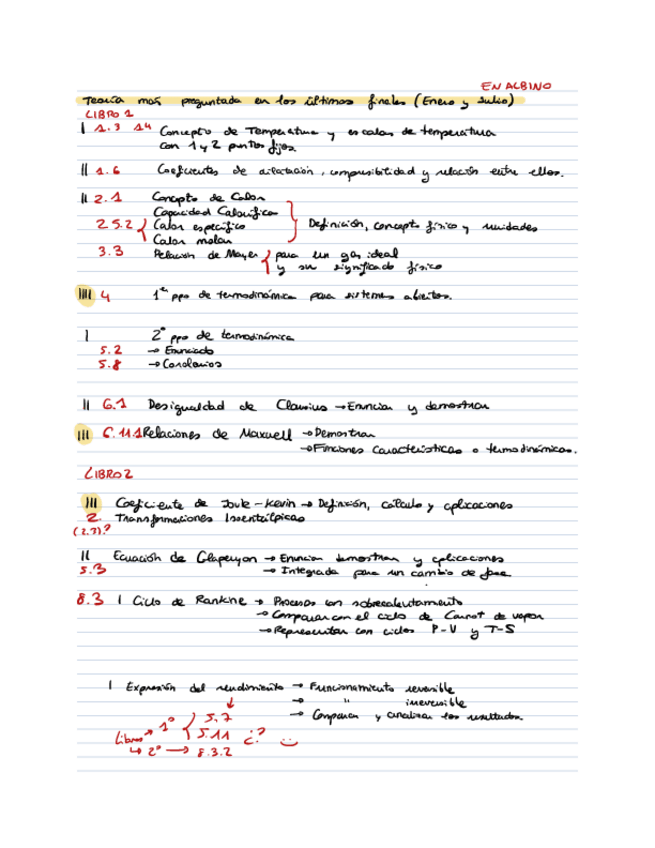 EN ALBINO
Teoría mas preguntada en los últimos finales (Enero y Julio)
LIBRO 1
| 1.3 1.4 Concepto de Temperatura y escalas de temperatura
con 1 y 2 puntos fijos.
|| 1.6 Coeficientes de dilatación, compresibilidad y relación entre ellos.
|| 2.1 Concepto de Calor
Capacidad Calorífica
2.5.2 Calor específico Definición, concepto físico y unidades
Calor molar
3.3 Relación de Mayer para un gas ideal
y su significado físico
|||| 4 1er ppo de termodinámica para sistemas abiertos.
| 2º ppo de termodinámica
5.2 → Enunciado
5.8 → Corolarios
|| 6.1 Desigualdad de Clausius → Enunciar y demostrar
||| 6.11.1 Relaciones de Maxwell → Demostrar
→ Funciones Características o termodinámicas.
LIBRO 2
||| Coeficiente de Joule-Kelvin → Definición, cálculo y aplicaciones
2. Transformaciones Isentálpicas
(2.7)?
|| Ecuación de Clapeyron → Enunciar demostrar y aplicaciones
5.3 → Integrada para un cambio de fase
8.3 | Ciclo de Rankine → Procesos con sobrecalentamiento
→ Comparar con el ciclo de Carnot de vapor
→ Representar con ciclos P-V y T-S
| Expresión del rendimiento → Funcionamiento reversible
↓ → " irreversible
5.7 → Comparar y analizar los resultados.
Libros → 1º 5.11 ¿? :)
↳ 2º → 8.3.2